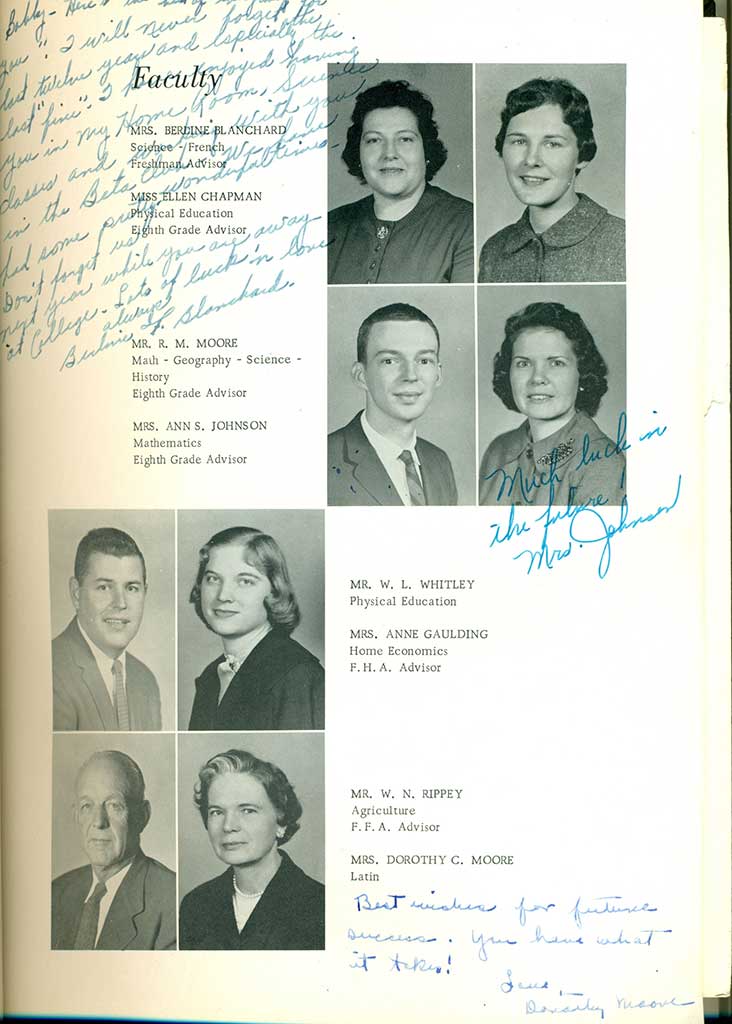 Bobby - Here's to the
you". I will never forget the
last twelve years and especially the
last "fine". I have enjoyed having
you in my Home Room, Science
classes and with you
in the Beta Club. We have
had some pretty wonderful times.
Don't forget us
next year while you are away
at College - Lots of luck 'n love
always,
Berdine F. Blanchard.
Faculty
MRS. BERDINE BLANCHARD
Science - French
Freshman Advisor
MISS ELLEN CHAPMAN
Physical Education
Eighth Grade Advisor
MR. R. M. MOORE
Math - Geography - Science -
History
Eighth Grade Advisor
MRS. ANN S. JOHNSON
Mathematics
Eighth Grade Advisor
Much luck in
the future!
Mrs. Johnson
MR. W. L. WHITLEY
Physical Education
MRS. ANNE GAULDING
Home Economics
F.H.A. Advisor
MR. W. N. RIPPEY
Agriculture
F.F.A. Advisor
MRS. DOROTHY C. MOORE
Latin
Best wishes for future
success. You have what
it takes!
Love,
Dorothy Moore